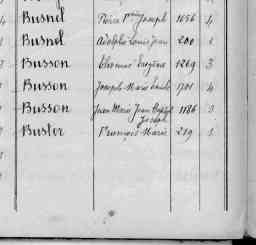 Busnel Pierre Joseph 1656 4
Busnel Adolphe Louis Jean 200 1
Busson Thomas Eugène 1269 3
Busson Joseph Marie Emile 1701 4
Busson Jean Marie Jean Bapt 1186 3
Joseph
Buster François Marie 219 1